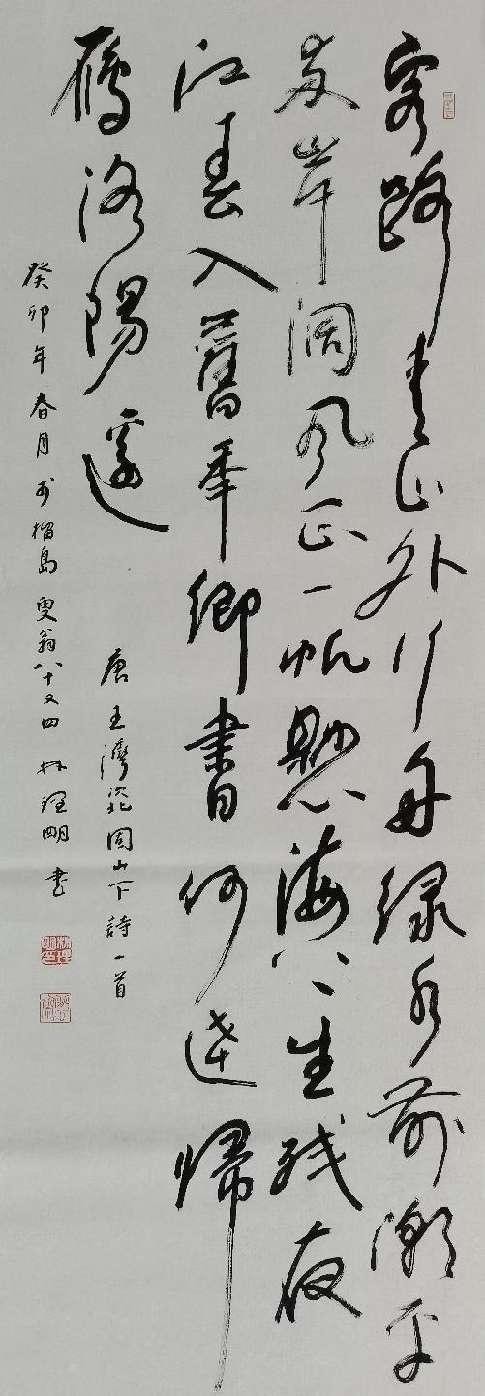 客路青山外行舟绿水前潮平
兩岸闊風正一帆懸海日生残夜
江春入舊年鄉書何達歸
雁洛陽邊
唐王灣次北固山下詩一首
癸卯年春月於榴島叟翁八十又四林理明書